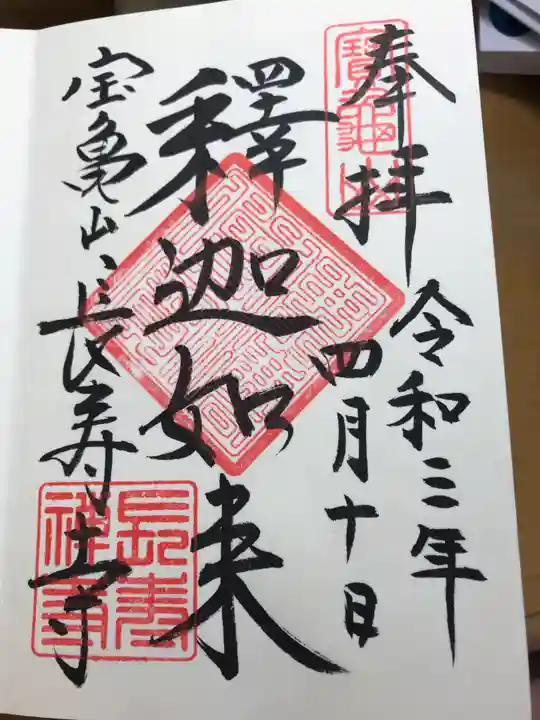 奉拝
令和三年
四月十日
釋迦如来
宝亀山長寿寺
寶龜山
長壽禅寺